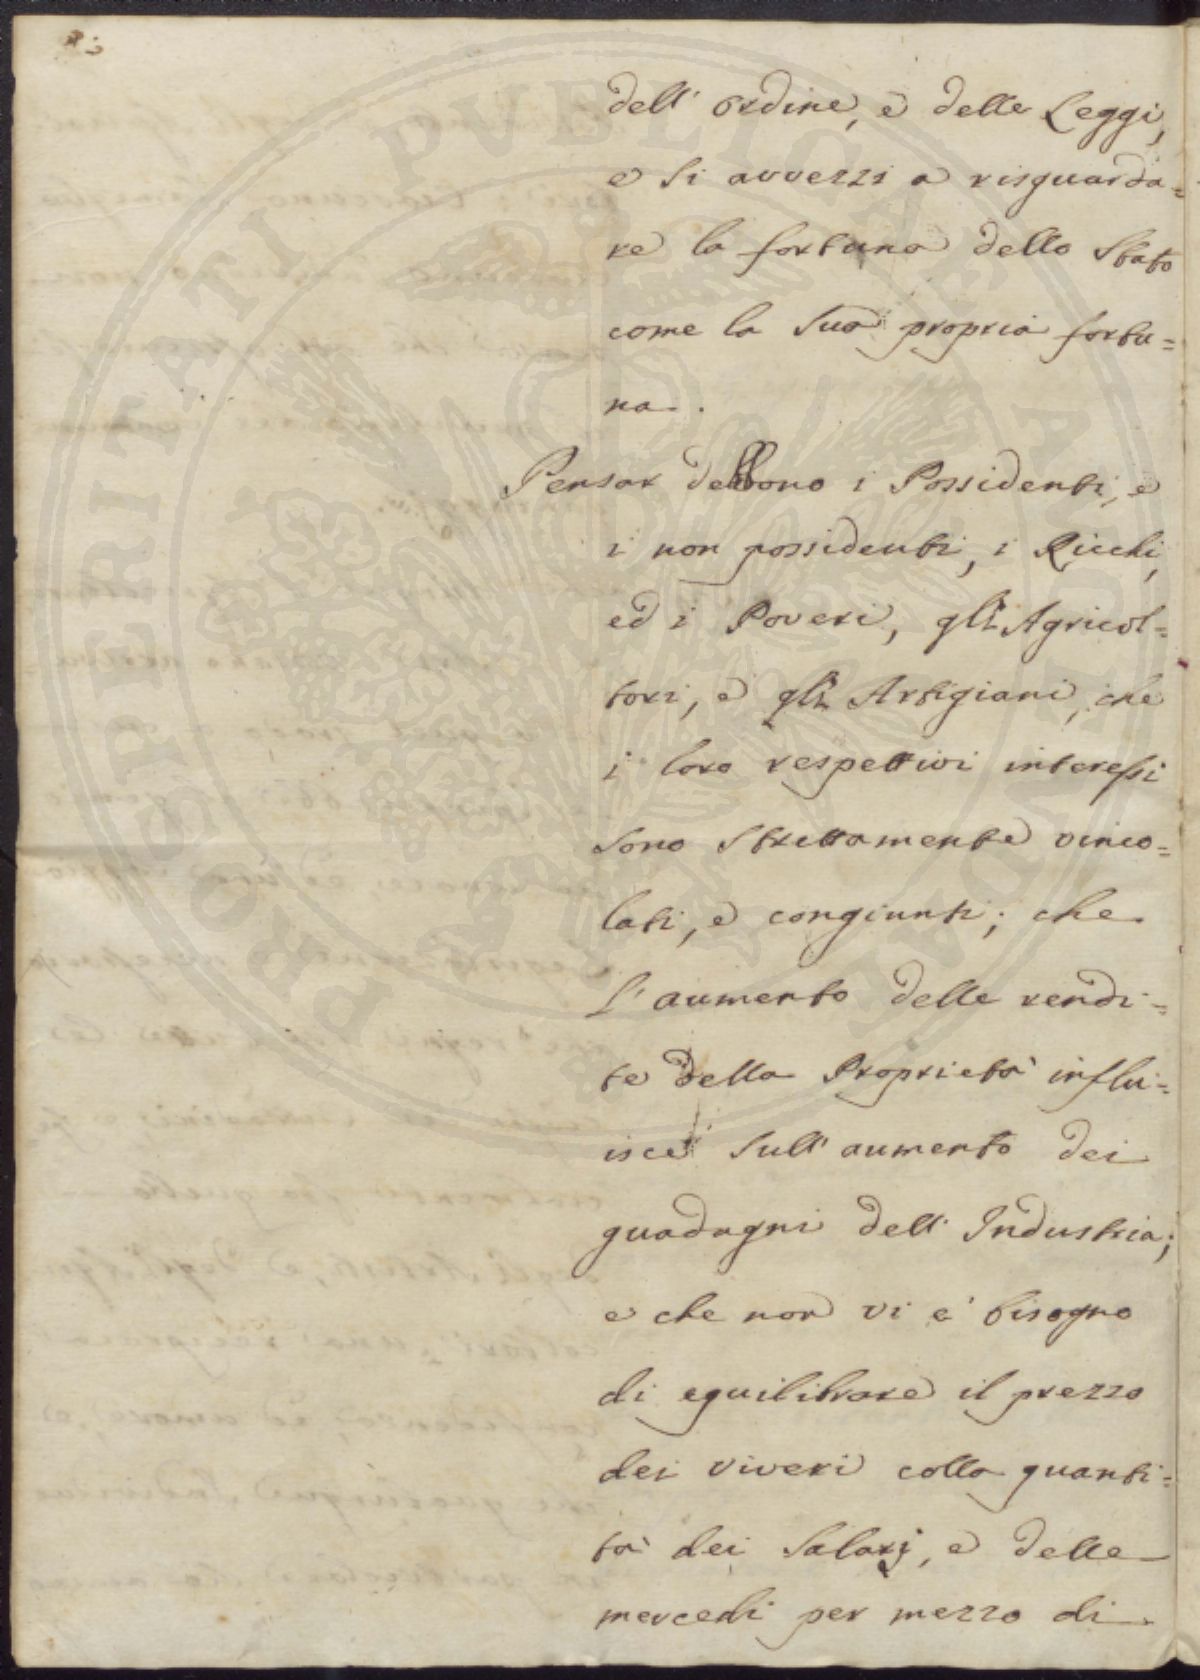 dell' ordine, e delle Leggi,
e si avvezzi a risguarda=
re la fortuna dello Stato
come la Sua propria fortu=
na.
Pensar debbono i Possidenti, e
i non possidenti, i Ricchi,
ed i Poveri, gli Agricol=
tori, e gli Artigiani, che
i loro respettivi interessi
sono strettamente vinco=
lati, e congiunti; che
l'aumento delle rendi=
te della Proprietà influ=
isce sull' aumento dei
guadagni dell' Industria;
e che non vi è bisogno
di equilibrare il prezzo
dei viveri colla quanti=
tà dei Salarj, e delle
mercedi per mezzo di
PROSPERITATI PVBLICAE